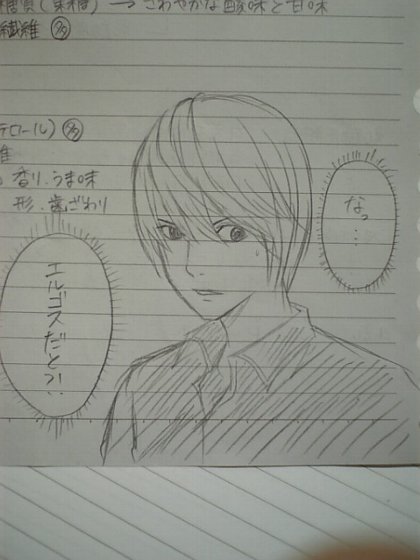 糖質(果糖) → さわやかな酸味と甘味
繊維 多
テロール) 多
維
香り.うま味
形.歯ざわり
なっ…
エルゴスだと?!